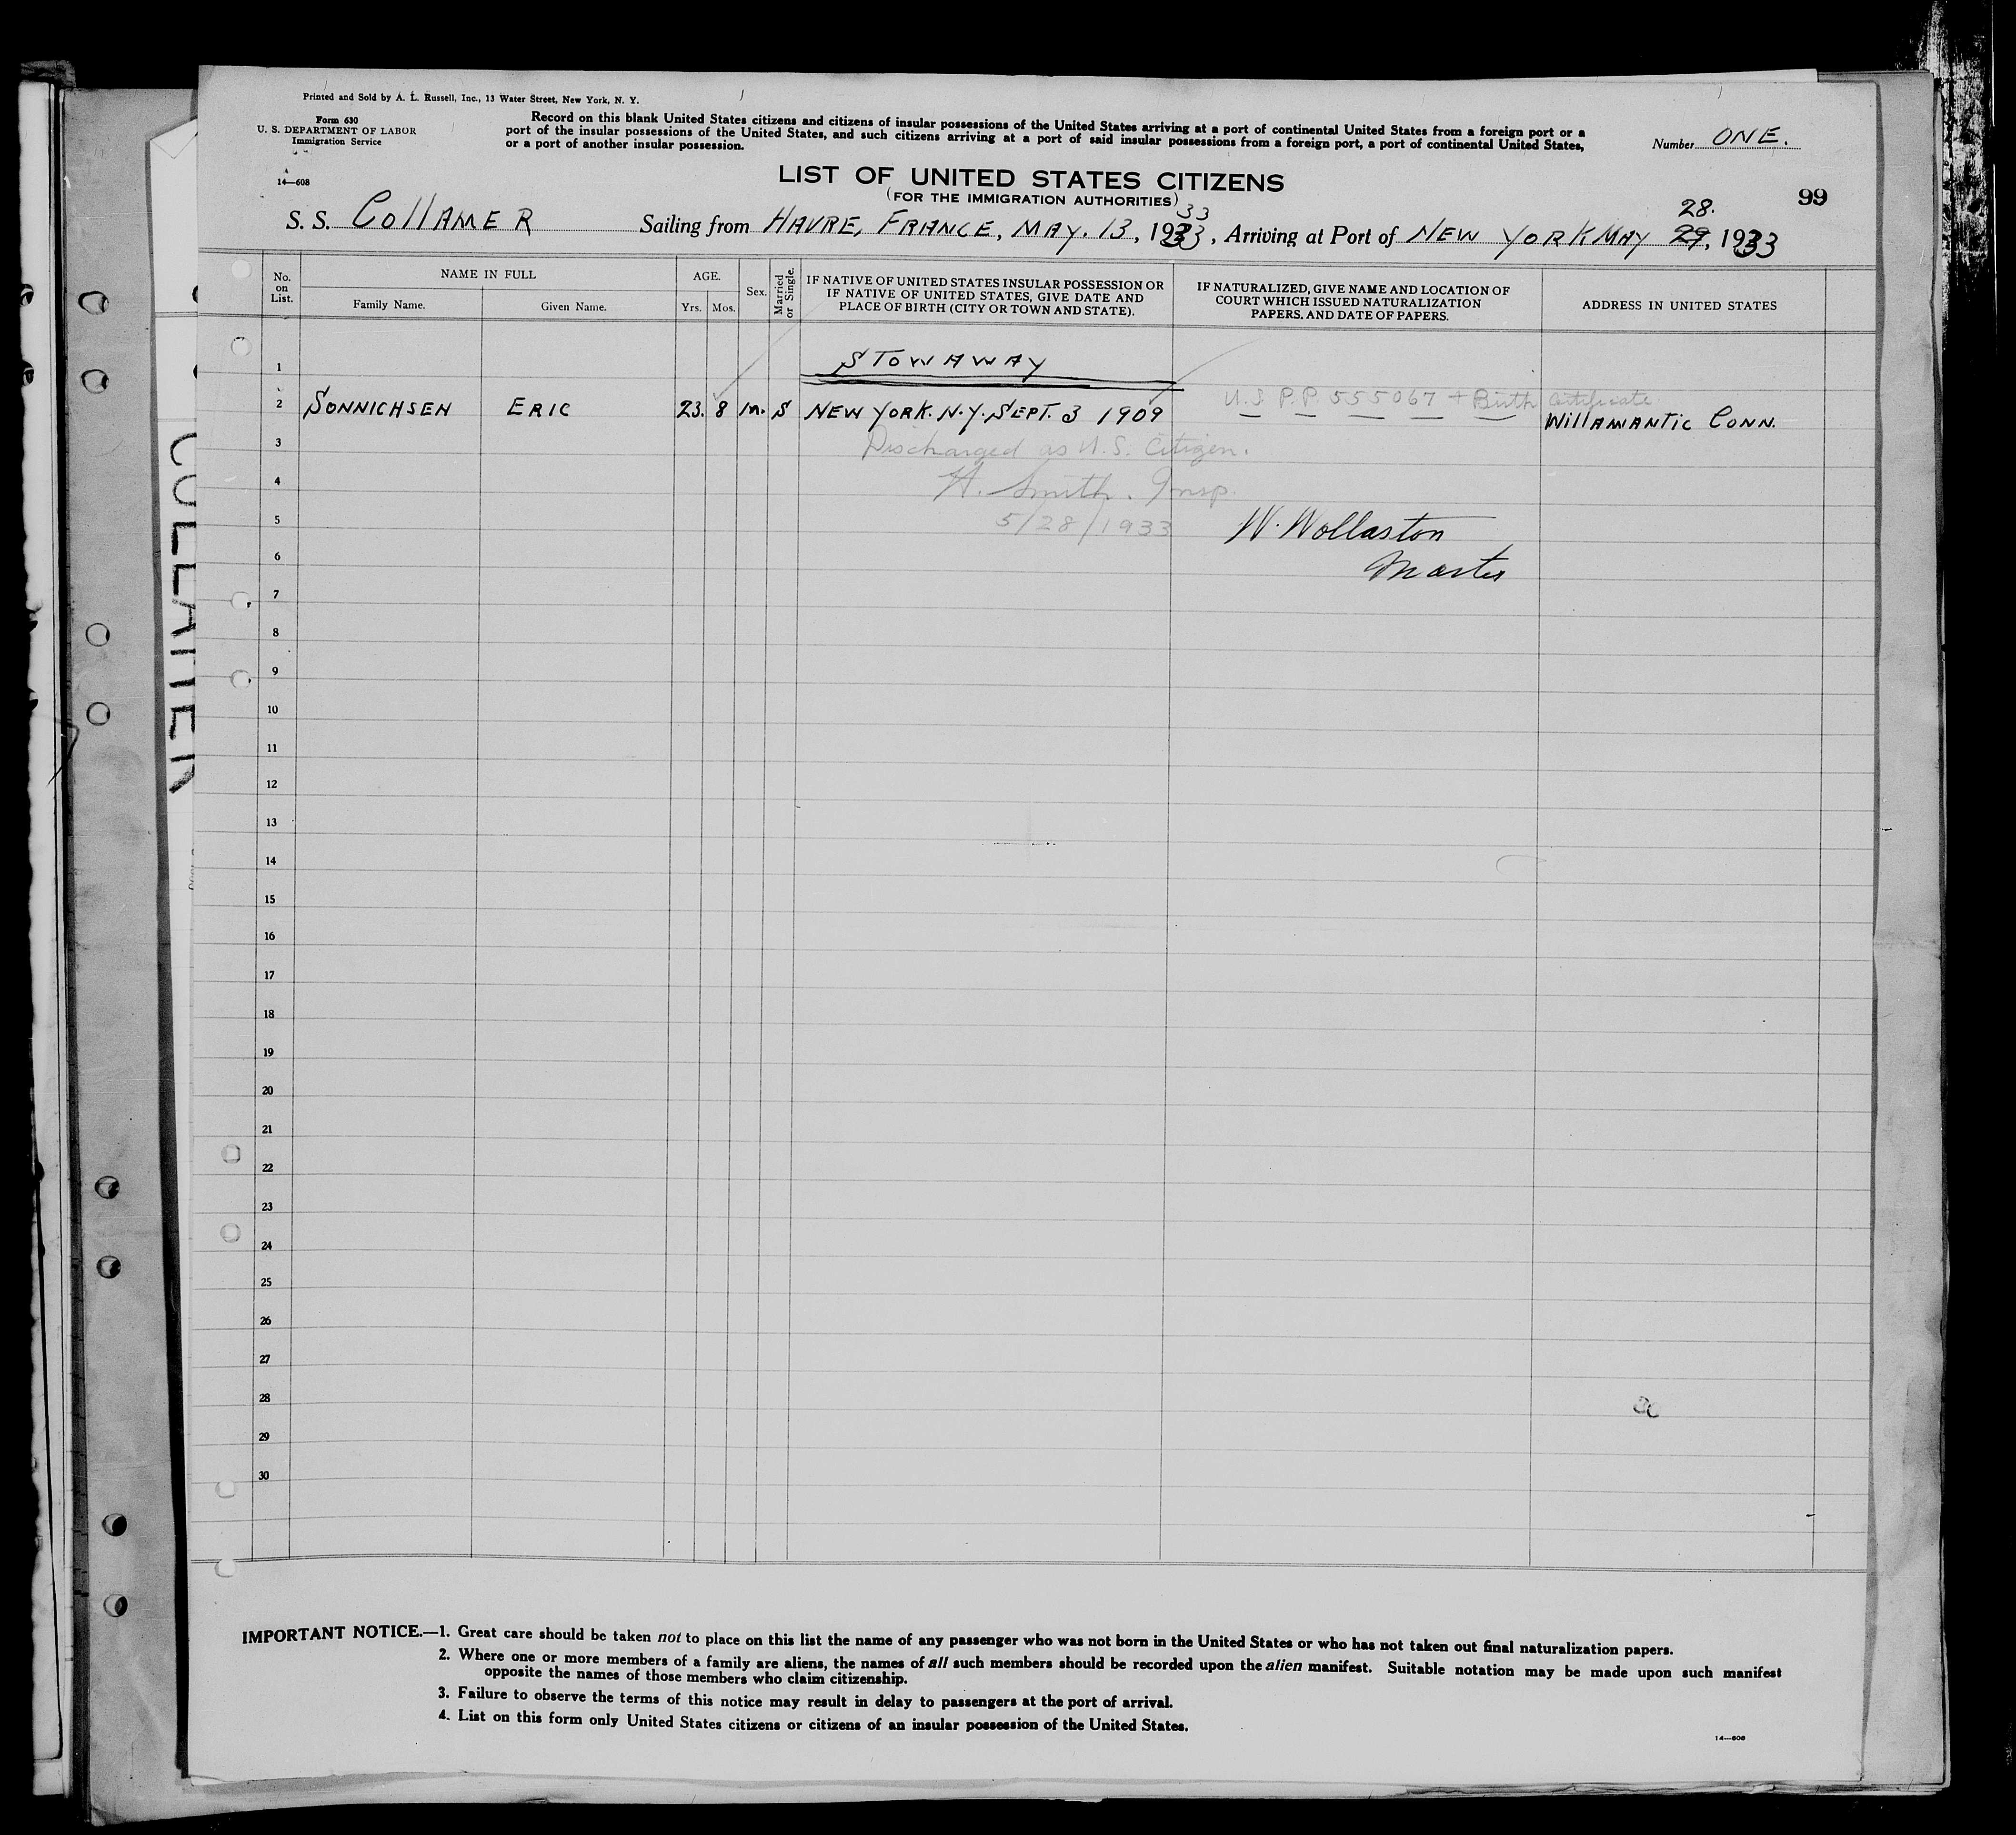 Printed and Sold by A. L. Russell, Inc., 13 Water Street, New York, N. Y.
Form 630
U. S. DEPARTMENT OF LABOR
Immigration Service
14—608
Record on this blank United States citizens and citizens of insular possessions of the United States arriving at a port of continental United States from a foreign port or a
port of the insular possessions of the United States, and such citizens arriving at a port of said insular possessions from a foreign port, a port of continental United States,
or a port of another insular possession.
Number ONE.
LIST OF UNITED STATES CITIZENS
(FOR THE IMMIGRATION AUTHORITIES)
99
33
28.
S. S. COLLAMER Sailing from HAVRE, FRANCE, MAY. 13, 1933, Arriving at Port of NEW YORK MAY 29, 1933
No. on List.
NAME IN FULL
Family Name.
Given Name.
AGE.
Yrs.
Mos.
Sex.
Married or Single.
IF NATIVE OF UNITED STATES INSULAR POSSESSION OR
IF NATIVE OF UNITED STATES, GIVE DATE AND
PLACE OF BIRTH (CITY OR TOWN AND STATE).
IF NATURALIZED, GIVE NAME AND LOCATION OF
COURT WHICH ISSUED NATURALIZATION
PAPERS, AND DATE OF PAPERS.
ADDRESS IN UNITED STATES
1 STOWAWAY
U.S. P.P. 555067 + Birth Certificate
2 SONNICHSEN ERIC 23. 8 M. S NEW YORK. N.Y. SEPT. 3 1909 WILLAMANTIC CONN.
3 Discharged as U.S. Citizen.
4 H. Smith. Insp.
5 5/28/1933 W. Wollaston
6 Master
7
8
9
10
11
12
13
14
15
16
17
18
19
20
21
22
23
24
25
26
27
28
29
30
IMPORTANT NOTICE.—1. Great care should be taken not to place on this list the name of any passenger who was not born in the United States or who has not taken out final naturalization papers.
2. Where one or more members of a family are aliens, the names of all such members should be recorded upon the alien manifest. Suitable notation may be made upon such manifest
opposite the names of those members who claim citizenship.
3. Failure to observe the terms of this notice may result in delay to passengers at the port of arrival.
4. List on this form only United States citizens or citizens of an insular possession of the United States.
14—608